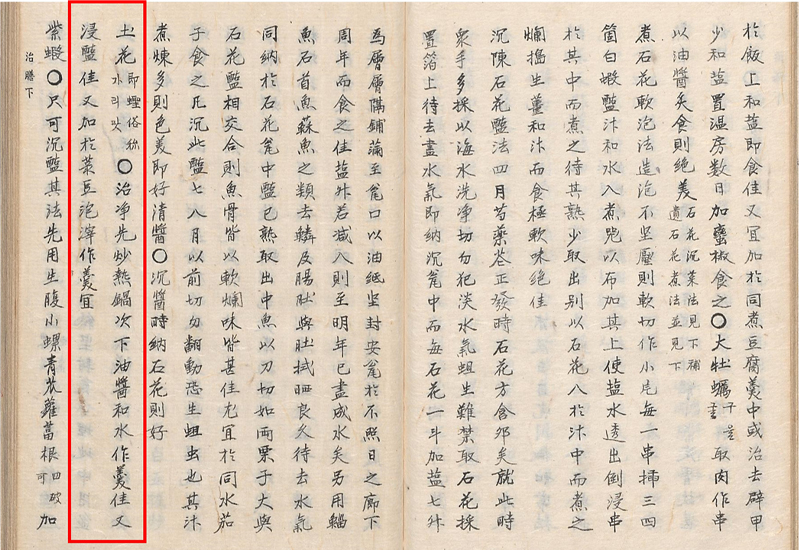 於飯上和盐即食佳又宜加於同煮豆腐羹中或治去碎甲
少和盐置温房数日加蠻椒食之〇大牡蠣 取肉作串
以油醬炙食則絶美 石花沉菜法見下補遺石花煮法並見下
煮石花軟泡法造泡不坚壓則軟切作小片每一串揷三四
箇白蝦䀋汁和水入煮兠以布加其上使盐水透出倒浸串
於其中而煮之待其熟少取出别以石花入於汁中而煮之
爛搗生薑和汁而食極軟味絶佳
沉陳石花䀋法四月芍藥花正發時石花方含卵矣就此時
衆手多採以海水洗净切勿犯淡水氣蛆生難禁取石花採
置箔上待去盡水氣即納沉瓮中而每石花一斗加盐七升
爲層層隔鋪滿至瓮口以油紙坚封安瓮於不照日之廊下
周年而食之佳盐升若减八則至明年已盡成水矣另用鯔
魚石首魚蘇魚之類去鱗及膓肚與肚拭晒良久待去水氣
同納於石花瓮中䀋已熟取出中魚以刀切如両栗子大與
石花䀋相交合則魚骨皆以軟爛味皆甚佳尤宜於同水茄
子食之凡沉此䀋七八月以前切勿翻動恐生蛆虫也其汁
煮煉多則色羙即好清醬〇沉醬時納石花則好
土花 即蟶俗称가리맛 〇治净先炒熱鍋次下油醬和水作羹佳又
浸䀋佳又加於菉豆泡滓作羹宜
紫蝦〇只可沉䀋其法先用生腹小螺青苽蘿葍根 四破可 加
治膳下